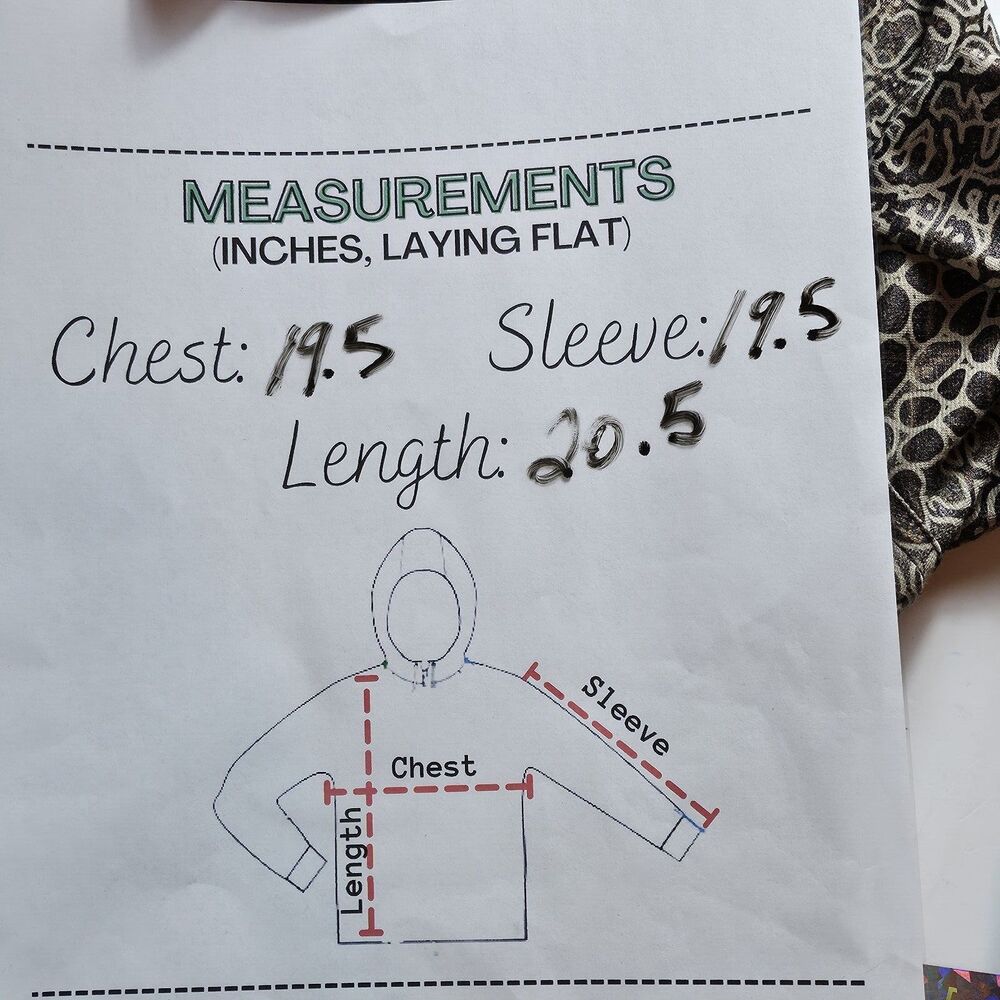 MEASUREMENTS
(INCHES, LAYING FLAT)
Chest: 19.5 Sleeve: 19.5
Length: 20.5
Sleeve
Chest
Length